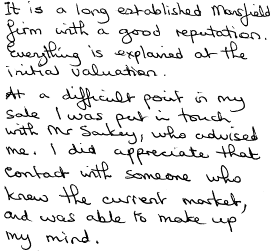 It is a long established Mansfield
firm with a good reputation.
Everything is explained at the
initial valuation.
At a difficult point in my
sale I was put in touch
with Mr Sankey, who advised
me. I did appreciate that
contact with someone who
knew the current market,
and was able to make up
my mind.